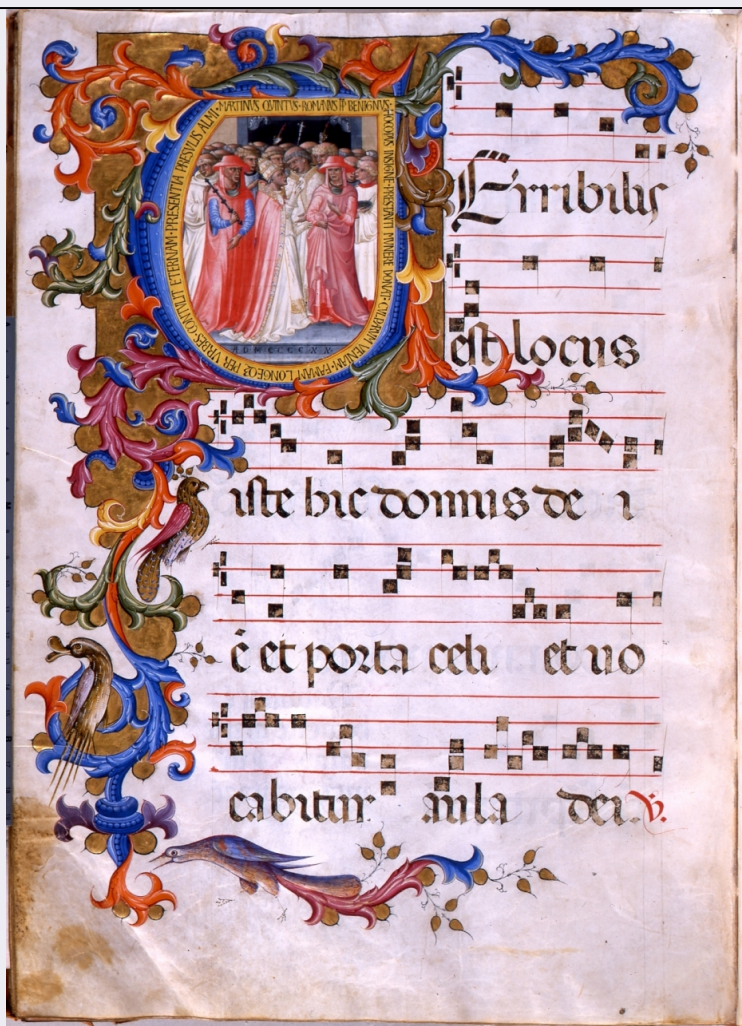 MARTINVS QVINTVS · ROMANVS PP BENIGNVS ·
HOC OPUS INSIGNE · PRESTANTI MVNERE DONAT · CVLPARVM VENIAM · FAMAM LONGEQ3 PER VRBES · CONTVLIT ETERNAM · PRESENTIA PRESVLIS ALMI ·
ADMCCCCXX
Erribilis
est locus
iste hic domus de i
ē et porta celi et uo
cabitur aula dei. V.